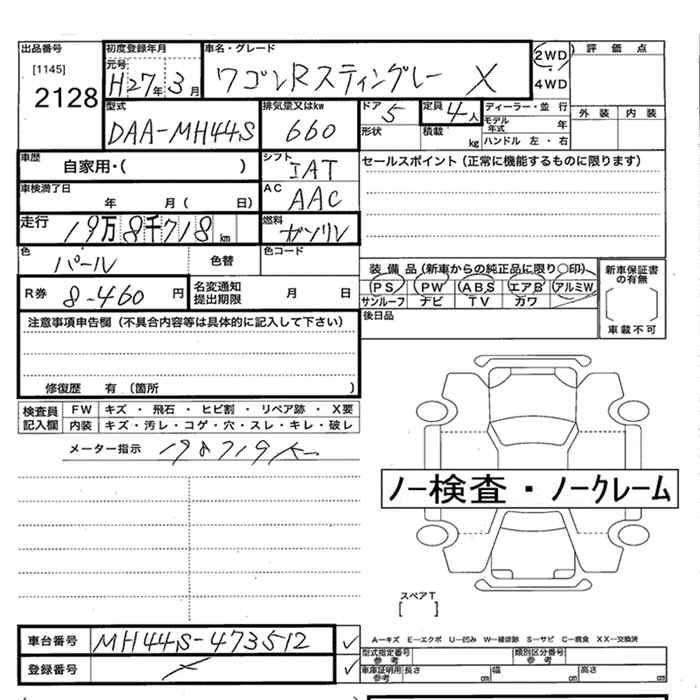 出品番号 初度登録年月 車名・グレード 2WD 評価点
[1145] 元号
2128 H27年 3月 ワゴンRスティングレー X 4WD
型式 排気量又はkw ドア 定員 ディーラー・並行 外装 内装
DAA-MH44S 660 5 4人 モデル年式 年
形状 積載 kg ハンドル 左・右
車歴 自家用・( ) シフト IAT セールスポイント(正常に機能するものに限ります)
車検満了日 年 月( 日) AC AAC
走行 19万8千718km 燃料 ガソリン
色 パール 色替 色コード
装備品(新車からの純正品に限り○印) 新車保証書の有無
R券 8-460円 名変通知提出期限 月 日 PS PW ABS エアB アルミW
サンルーフ ナビ TV カワ
注意事項申告欄(不具合内容等は具体的に記入して下さい) 後日品 車載不可
修復歴 有(箇所 )
検査員記入欄 FW キズ・飛石・ヒビ割・リペア跡・X要
内装 キズ・汚レ・コゲ・穴・スレ・キレ・破レ
メーター指示
ノー検査・ノークレーム
スペアT
[ ]
車台番号 MH44S-473512 ✓ A―キズ E―エクボ U―凹み W―補修跡 S―サビ C―腐食 XX―交換済
型式指定番号 参考 類別区分番号 参考
登録番号 ✓ 車庫証明用 参考 長さ cm 幅 cm 高さ cm